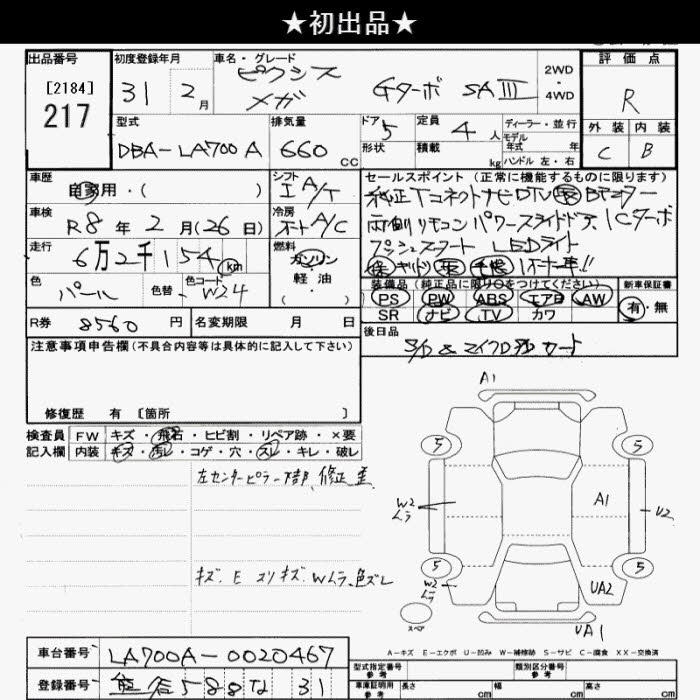 ★初出品★
出品番号 初度登録年月 車名・グレード 評価点
[2184]
217
31年 2月
ピクシス
メガ Gターボ SAⅢ
2WD・4WD
R
型式 排気量 ドア 定員 ディーラー・並行
外装 内装
DBA-LA700A 660cc 5 4人
モデル年式 年
形状 積載 kg ハンドル 左・右
C B
車歴 シフト セールスポイント (正常に機能するものに限ります)
自家用・( ) I A/T
純正TコネクトナビDTV Bモニター
車検 R8年 2月(26日) 冷房 オートA/C
両側リモコンパワースライドドア、ICターボ
走行 6万2千154km 燃料 ガソリン 軽油・( )
プッシュスタート LEDライト
1オーナー車!!
色 パール 色替 色コード W24
装備品(純正品に限り○をつけてください) 新車保証書
PS PW ABS エアB AW 有・無
R券 8560円 名変期限 月 日
SR ナビ TV カワ
注意事項申告欄(不具合内容等は具体的に記入して下さい)
後日品
S/D & マイクロSDカード
修復歴 有 [箇所 ]
検査員 FW キズ・飛石・ヒビ割・リペア跡・×要
記入欄 内装 キズ・汚レ・コゲ・穴・スレ・キレ・破レ
左センターピラー下部、修正歪
キズ、E スリキズ、Wムラ、色ズレ
A1
5 5
W2
ムラ
A1
U2
5 5
W2
ムラ
UA2
スペア
UA1
A-キズ E-エクボ U-凹み W-補修跡 S-サビ C-腐食 XX-交換済
車台番号 LA700A-0020467
型式指定番号 類別区分番号
参考
登録番号 31
車庫証明用 参考 長さ cm 幅 cm 高さ cm